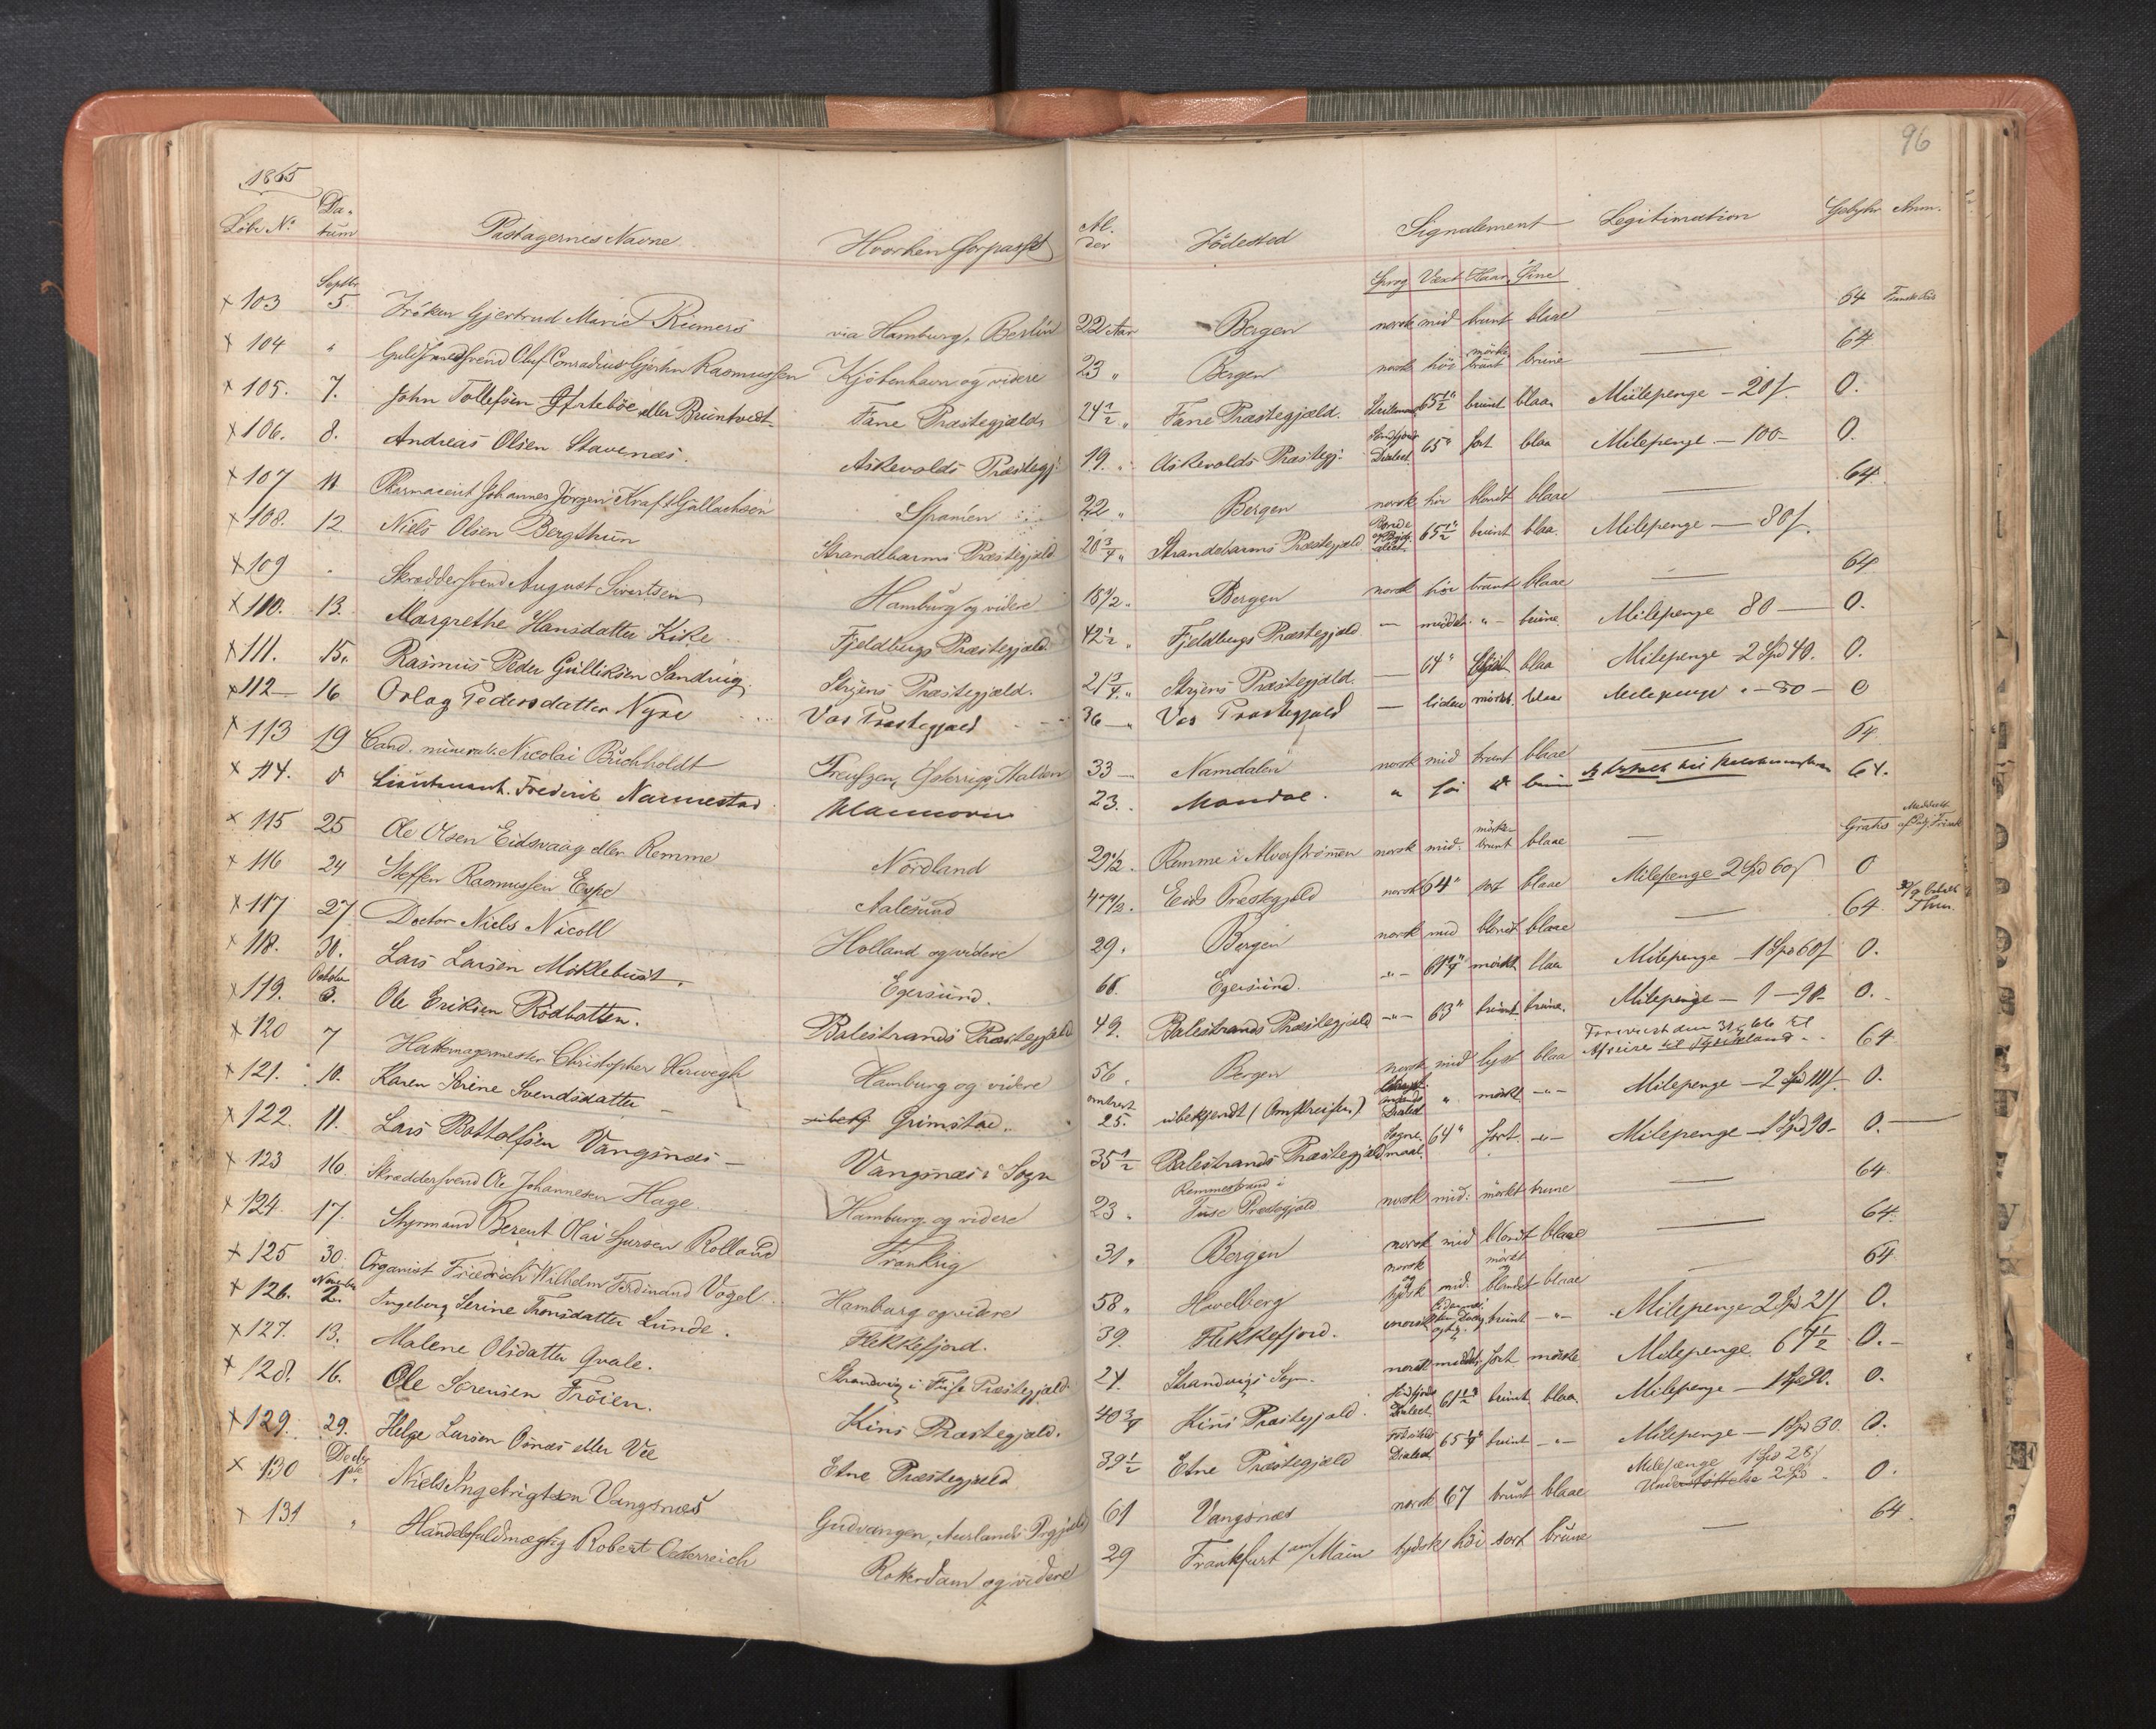 96
1865
Löbe No. Datum Pastagernes Navne Hvorhen forpasset Alder Födested Signalement Legitimation Gebyhr Anm.
Sprog Væxt Haar Öine
x 103 Septbr 5. Fröken Gjertrud Marie via Hamburg, Berlin 22 Aar Bergen norsk mid brunt blaae — 64
x 104 " Guldsmedsvend Oluf Conradius Gjörhn Rasmussen Kjöbenhavn og videre 23 " Bergen norsk höi mörke brunt brune — 64
x 105. 7. John Tollefsen eller Fane Præstegjæld 24 1/2 " Fane Præstegjæld. 65 1/2" brunt blaa Milepenge – 20 f. 0.
x 106. 8. Andreas Olsen Stavenæs. Askevolds Præstegj: 19. " Askevolds Præstegj: Söndfjords Dialect 65" sort blaa Milepenge – 100 – 0.
x 107 11 Pharmaceut Johannes Jörgen Kraft Spanien 22 " Bergen norsk höi blondt blaae — 64.
x 108. 12 Niels Olsen Bergthun Strandbarms Præstegjæld 20 3/4 " Strandebarms Præstegjæld 65 1/2" brunt blaa. Milepenge — 80 f.
x 109 . Skrædersvend August Sivertsen Hamburg og videre 18 1/2 " Bergen norsk höi brunt blaae — 64
x 110. 13. Margrethe Hansdatter Kike Fjeldbergs Præstegjæld 42 1/2 " Fjeldbergs Præstegjæld — middels " – brune. Milepenge 80 — 0.
x 111. 15. Rasmus Peder Gulliksen Sandvig. Stryens Præstegjæld. 21 3/4 " Stryens Præstegjæld. — 64" blaa Milepenge – 2 Spd 40. 0.
x 112 — 16 Orlog Pedersdatter Nyre Vos Præstegjæld 36 — " Vos Præstegjæld — liden mörkt blaa Milepenge " – 80 – 0
x 113 19 Cand. mineral. Nicolai Buchholdt Preuszen, Österrig, Italien 33 — Namdalen norsk mid brunt blaae — 64
x 114. " Lieutenant Frederik Nannestad 23. . Mandal. " höi " brune 64.
x 115 25 Ole Olsen Eidsvaag eller Remme Nordland 29 1/2 . Remme i Alverströmen norsk mid. mörke brunt blaae — Gratis
x 116 24 Steffen Rasmussen Eype Aalesund 47 1/2 . Eids Præstegjæld norsk 64" sort blaae Milepenge 2 Spd 60 f 0
x 117 27 Doctor Niels Nicoll Holland og videre 29. Bergen norsk mid blondt blaae — 64
x 118. 30. Lars Larsen Möklebust. Egersund. 66. Egersund. " – mörkt blaa Milepenge – 1 Spd 60 f 0.
x 119. October 3. Ole Eriksen Rödbotten. Balestrands Præstegjæld 49. Balestrands Præstegjæld – " – 63" brunt brune. Milepenge – 1 – 90 – 0.
x 120 7 Hattemagermester Christopher Herwegh Hamburg og videre 56. Bergen norsk mid lyst blaa 64
x 121. 10. Karen Serine Svendsdatter — Grimstad. omtrent 25. ubekjendt (Omstreifer) Dialect " mörkt – " – Milepenge – 2 Spd 111 f. 0.
x 122. 11. Lars Bottolfsen Vangsnæs – Vangsnæs i Sogn 35 1/2 Balestrands Præstegjæld Sognemaal. 64" sort – " – Milepenge – 1 Spd 90 – 0. —
x 123 16. Skrædersvend Ole Johannesen Hage Hamburg og videre 23. Remmestrand i Fuse Præstegjæld norsk mid: mörkt brune — 64.
x 124. 17. Styrmand Berent Olai Sjursen Rolland Frankrig 31 " Bergen norsk mid blondt blaae — 64.
x 125 30. Organist Friedrich Wilhelm Ferdinand Vogel Hamburg og videre 58 " Havelberg norsk og tydsk mid. mörkt og blondt blaae — 64
x 126. Novembr 2. Ingeborg Serine Tronsdatter Lunde. Flekkefjord. 39. Flekkefjord. norsk brunt – " – Milepenge 2 Spd 21 f 0.
x 127. 13. Malene Olsdatter Qvale. Strandvig i Fuse Præstegjæld 24. Strandvigs Sogn. norsk middels sort mörke Milepenge. 67 1/2 0. –
x 128. 16. Ole Sörensen Fröien. Kins Præstegjæld. 40 3/4 Kins Præstegjæld. Söndfjords Dialect 61 1/2" brunt blaa. Milepenge – 1 Spd 90. 0.
x 129. 29. Helge Larsen Osnæs eller Vee Etne Præstegjæld 39 1/2 Etne Præstegjæld Dialect brunt – " – Milepenge – 1 Spd 30. 0.
x 130 Decbr 1ste Niels Ingebrigtsen Vangsnæs Gudvangen, Aurlands Prgjæld 61 Vangsnæs norsk 67 brunt blaae Milepænge 1 Spd 28 f Understöttelse 2 Spd – 0.
x 131 " Handelsfuldmægtig Robert Oesterreich Rotterdam og videre 29 Frankfurt am/Main tydsk höi sort brune — 64.